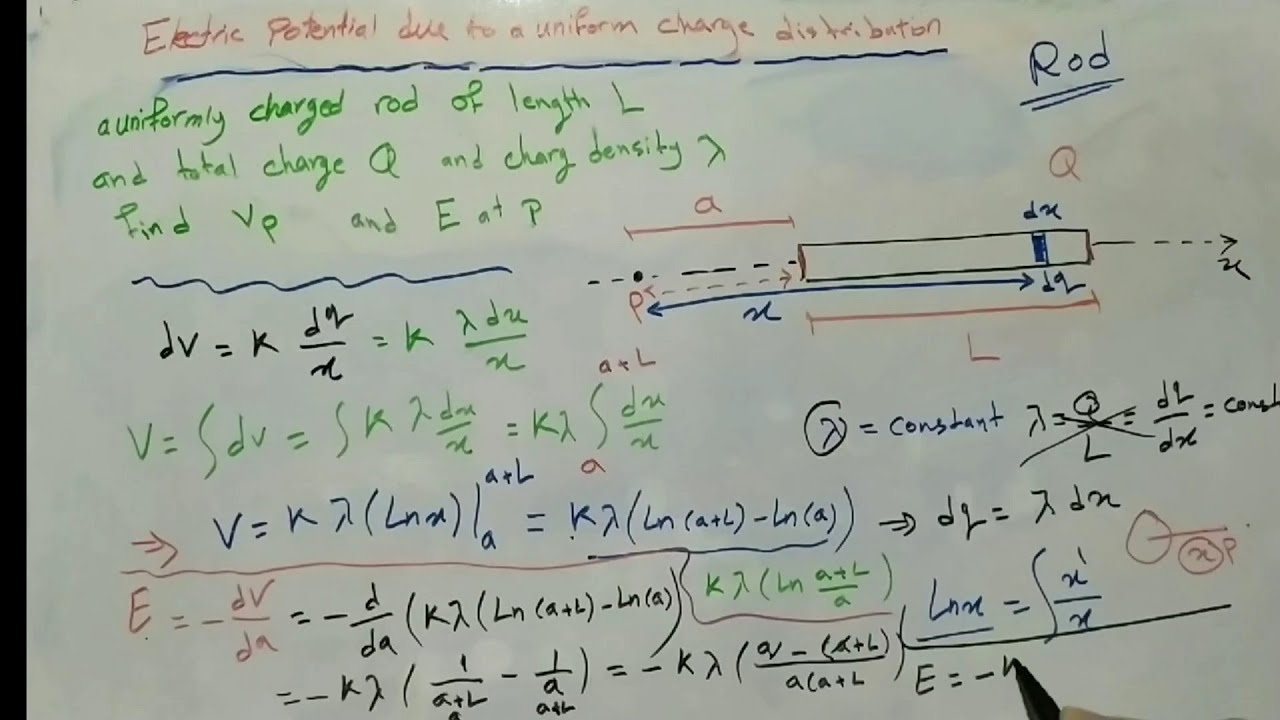 Electric Potential due to a uniform charge distribution
Rod
a uniformly charged rod of length L
and total charge Q and charg density λ
find Vp and E at P
Q
a
dx
P
x
dq
x
L
dV = K dq/x = K λdx/x
V = ∫dv = ∫K λ dx/x = Kλ ∫ₐᵃ⁺ᴸ dx/x
λ = constant λ = Q/L = dq/dx = const
⇒ V = K λ (Ln x)|ₐᵃ⁺ᴸ = Kλ(Ln(a+L) - Ln(a)) ⇒ dq = λ dx
Kλ(Ln a+L/a)
Ln x = ∫ x'/x
x P
E = - dV/da = - d/da (Kλ(Ln(a+L) - Ln(a))
= - Kλ ( 1/a+L - 1/a ) = - Kλ ( a - (a+L) / a(a+L )
a a+L
E = - K